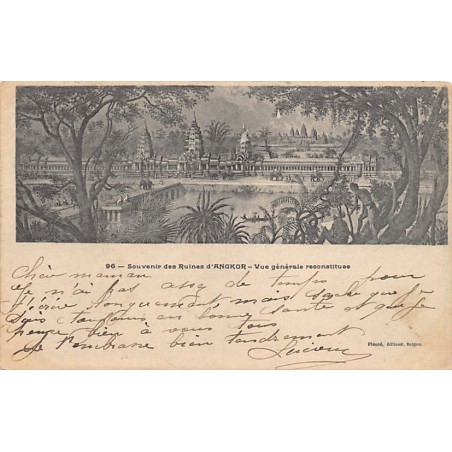 96 — Souvenir des Ruines d'ANGKOR – Vue générale reconstituee
Chère maman
Je n'ai pas assez de temps pour
t'écrire longuement mais sache que je
suis toujours en bonne santé et que je
pense bien à vous tous
Je t'embrasse bien tendrement
Lucien
Planté, éditeur, Saigon.